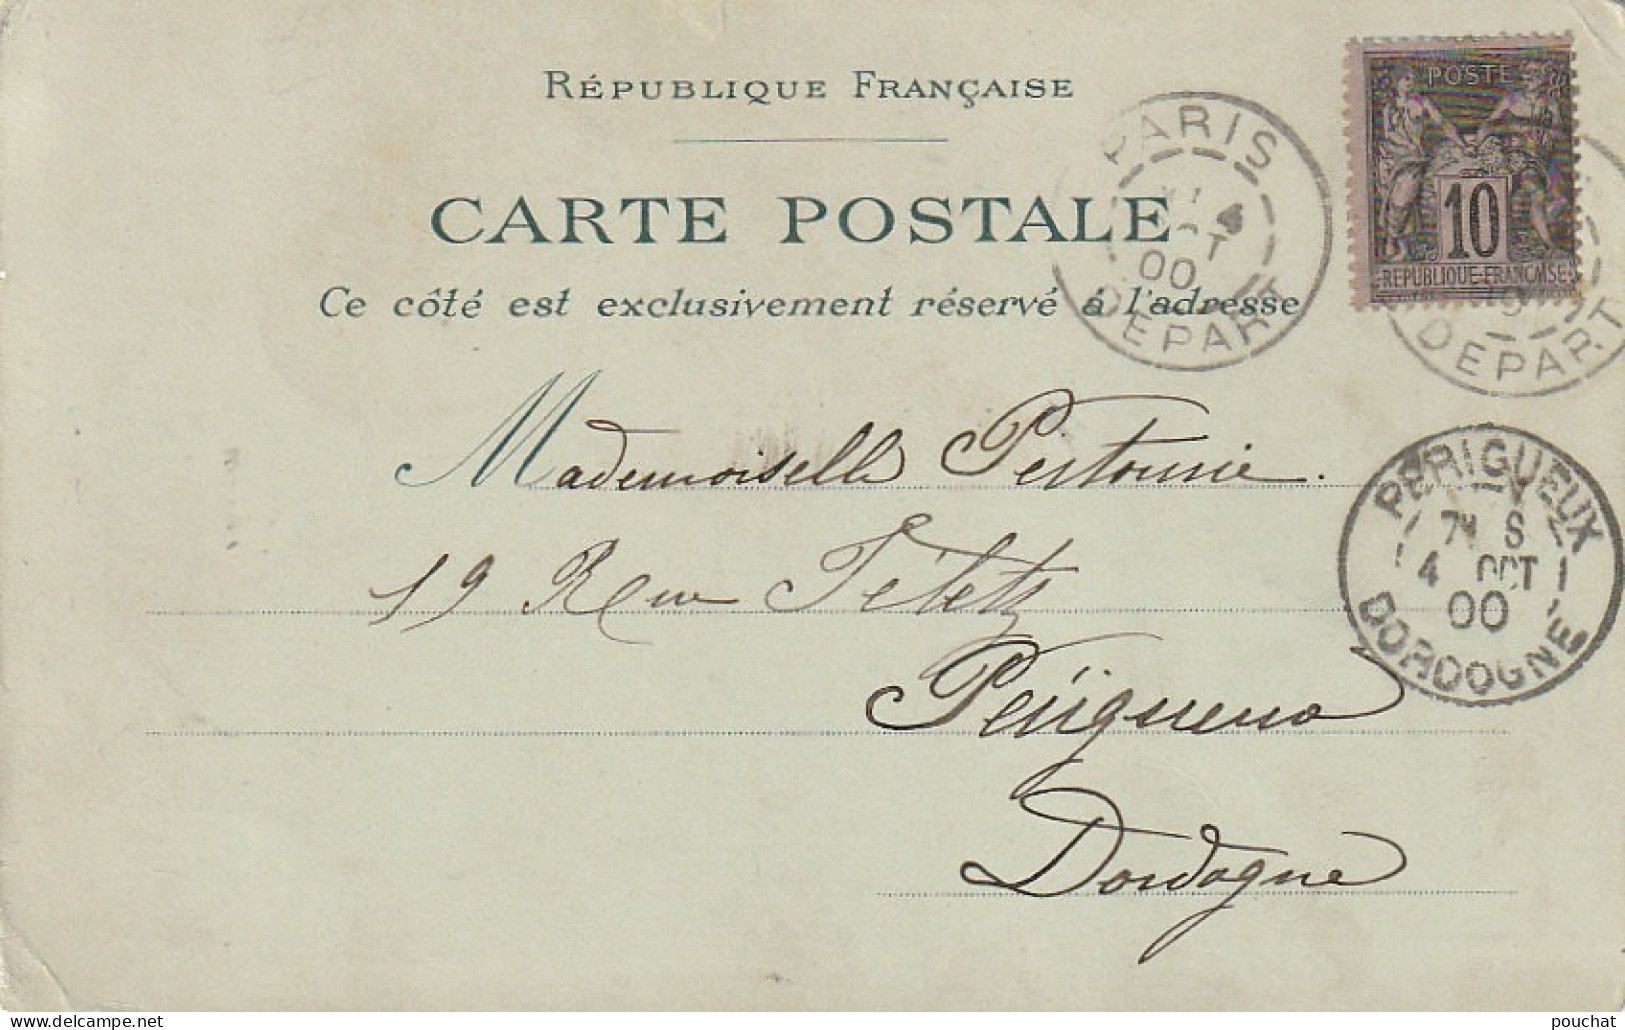 RÉPUBLIQUE FRANÇAISE
CARTE POSTALE
Ce côté est exclusivement réservé á l'adresse
POSTE
10
REPUBLIQUE-FRANCAISE
PARIS
4
OCT
00
DEPART
DEPART
Mademoiselle
19 Rue
Périgueux
Dordogne
PERIGUEUX
7 S
4 OCT
00
DORDOGNE
www.delcampe.net
pouchat